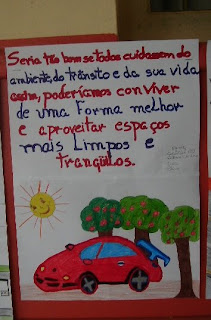 Seria tão bom se todos cuidassem do
ambiente, do trânsito e da sua vida
assim, poderíamos conviver
de uma Forma melhor
e aproveitar espaços
mais Limpos e
tranqüilos.